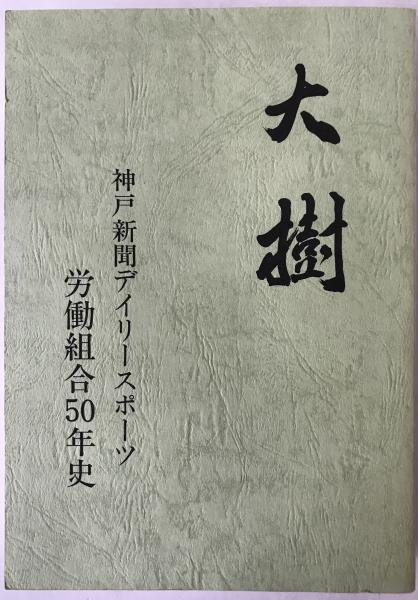 大樹
神戸新聞デイリースポーツ
労働組合50年史